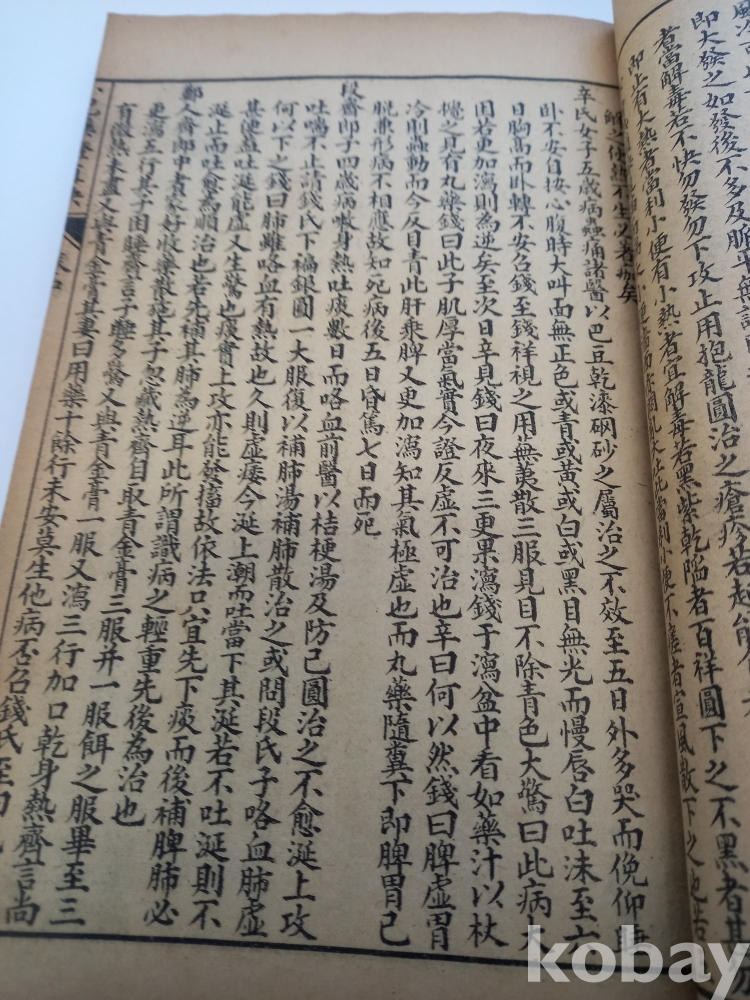 即大發之如發後不多及脈平無
者當解毒若不快勿發勿下攻止用抱龍圓治之瘡疹若起能
即止有大熱者當利小便有小熱者宜解毒若黑紫乾陷者百祥圓下之不黑者
當利小便不瘥者宣風散下之也若
解之使熱不生必者瘢矣
辛氏女子五歲病蟲痛諸醫以巴豆乾漆硇砂之屬治之不效至五日外多哭而俛仰睡
卧不安自按心腹時大叫面無正色或青或黃或白或黑目無光而慢唇白吐沫至六
日胸高而卧轉不安召錢至錢祥視之用蕪荑散三服見目不除青色大驚曰此病大
困若更加瀉則為逆矣至次日辛見錢曰夜來三更果瀉錢于瀉盆中看如藥汁以杖
攪之見有丸藥錢曰此子肌厚當氣實今證反虛不可治也辛曰何以然錢曰脾虛胃
冷則蟲動而今反目青此肝乘脾又更加瀉知其氣極虛也而丸藥隨糞下即脾胃已
脫兼形病不相應故知死病後五日昏篤七日而死
段齋郎子四歲病嗽身熱吐痰數日而咯血前醫以桔梗湯及防己圓治之不愈涎上攻
吐喘不止請錢氏下褊銀圓一大服復以補肺湯補肺散治之或問段氏子咯血肺虛
何以下之錢曰肺雖咯血有熱故也久則虛痿今涎上潮而吐當下其涎若不吐涎則不
甚便蓋吐涎能虛又生驚也痰實上攻亦能發搐故依法只宜先下痰而後補脾肺必
涎止而吐愈為順治也若先補其肺為逆耳此所謂識病之輕重先後為治也
鄭人齊郎中者家好收藥散施其子忽臧熱齊自取青金膏三服并一服餌之服畢至三
更瀉五行其子困睡齊言子睡多驚又與青金膏一服又瀉三行加口乾身熱齊言尚
有微熱未盡又與青金膏其妻曰用藥十餘行未安莫生他病否召錢氏至曰